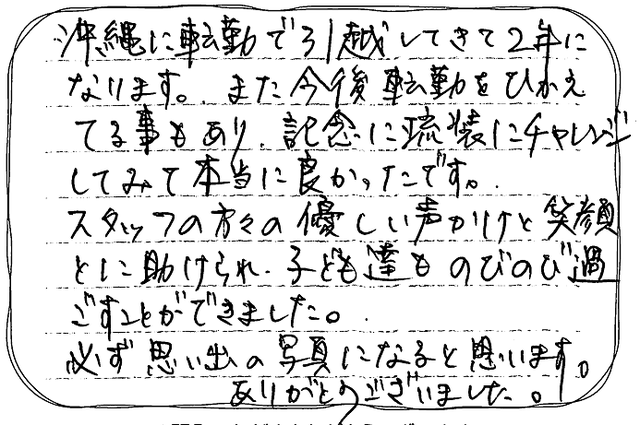 沖縄に転勤で引越してきて2年に
なります。また今後転勤をひかえ
てる事もあり、記念に琉装にチャレンジ
してみて本当に良かったです。
スタッフの方々の優しい声かけと笑顔
とに助けられ、子ども達ものびのび過
ごすことができました。
必ず思い出の写真になると思います。
ありがとうございました。